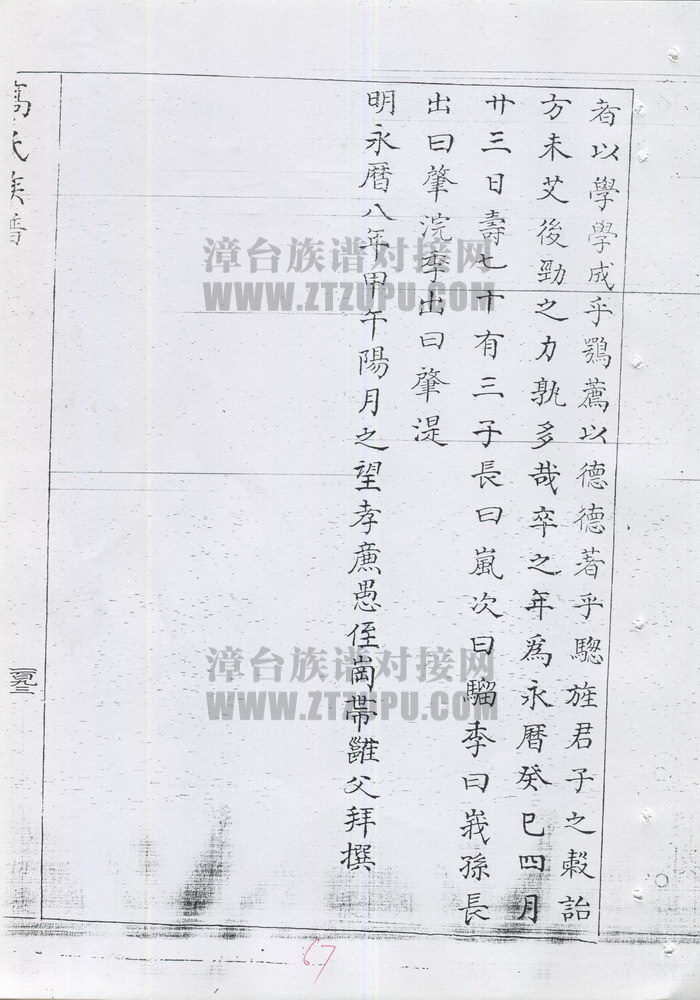 者以學學成乎鶚薦以德德著乎騘旌君子之穀詒
方未艾後勁之力孰多哉卒之年為永曆癸巳四月
廿三日壽七十有三子長曰嵐次曰騮季曰峩孫長
出曰肇浣季出曰肇湜
明永曆八年甲午陽月之望孝廉愚侄崗帶父拜撰
高氏族譜
一百九二
67
漳台族谱对接网
WWW.ZTZUPU.COM
漳台族谱对接网
WWW.ZTZUPU.COM